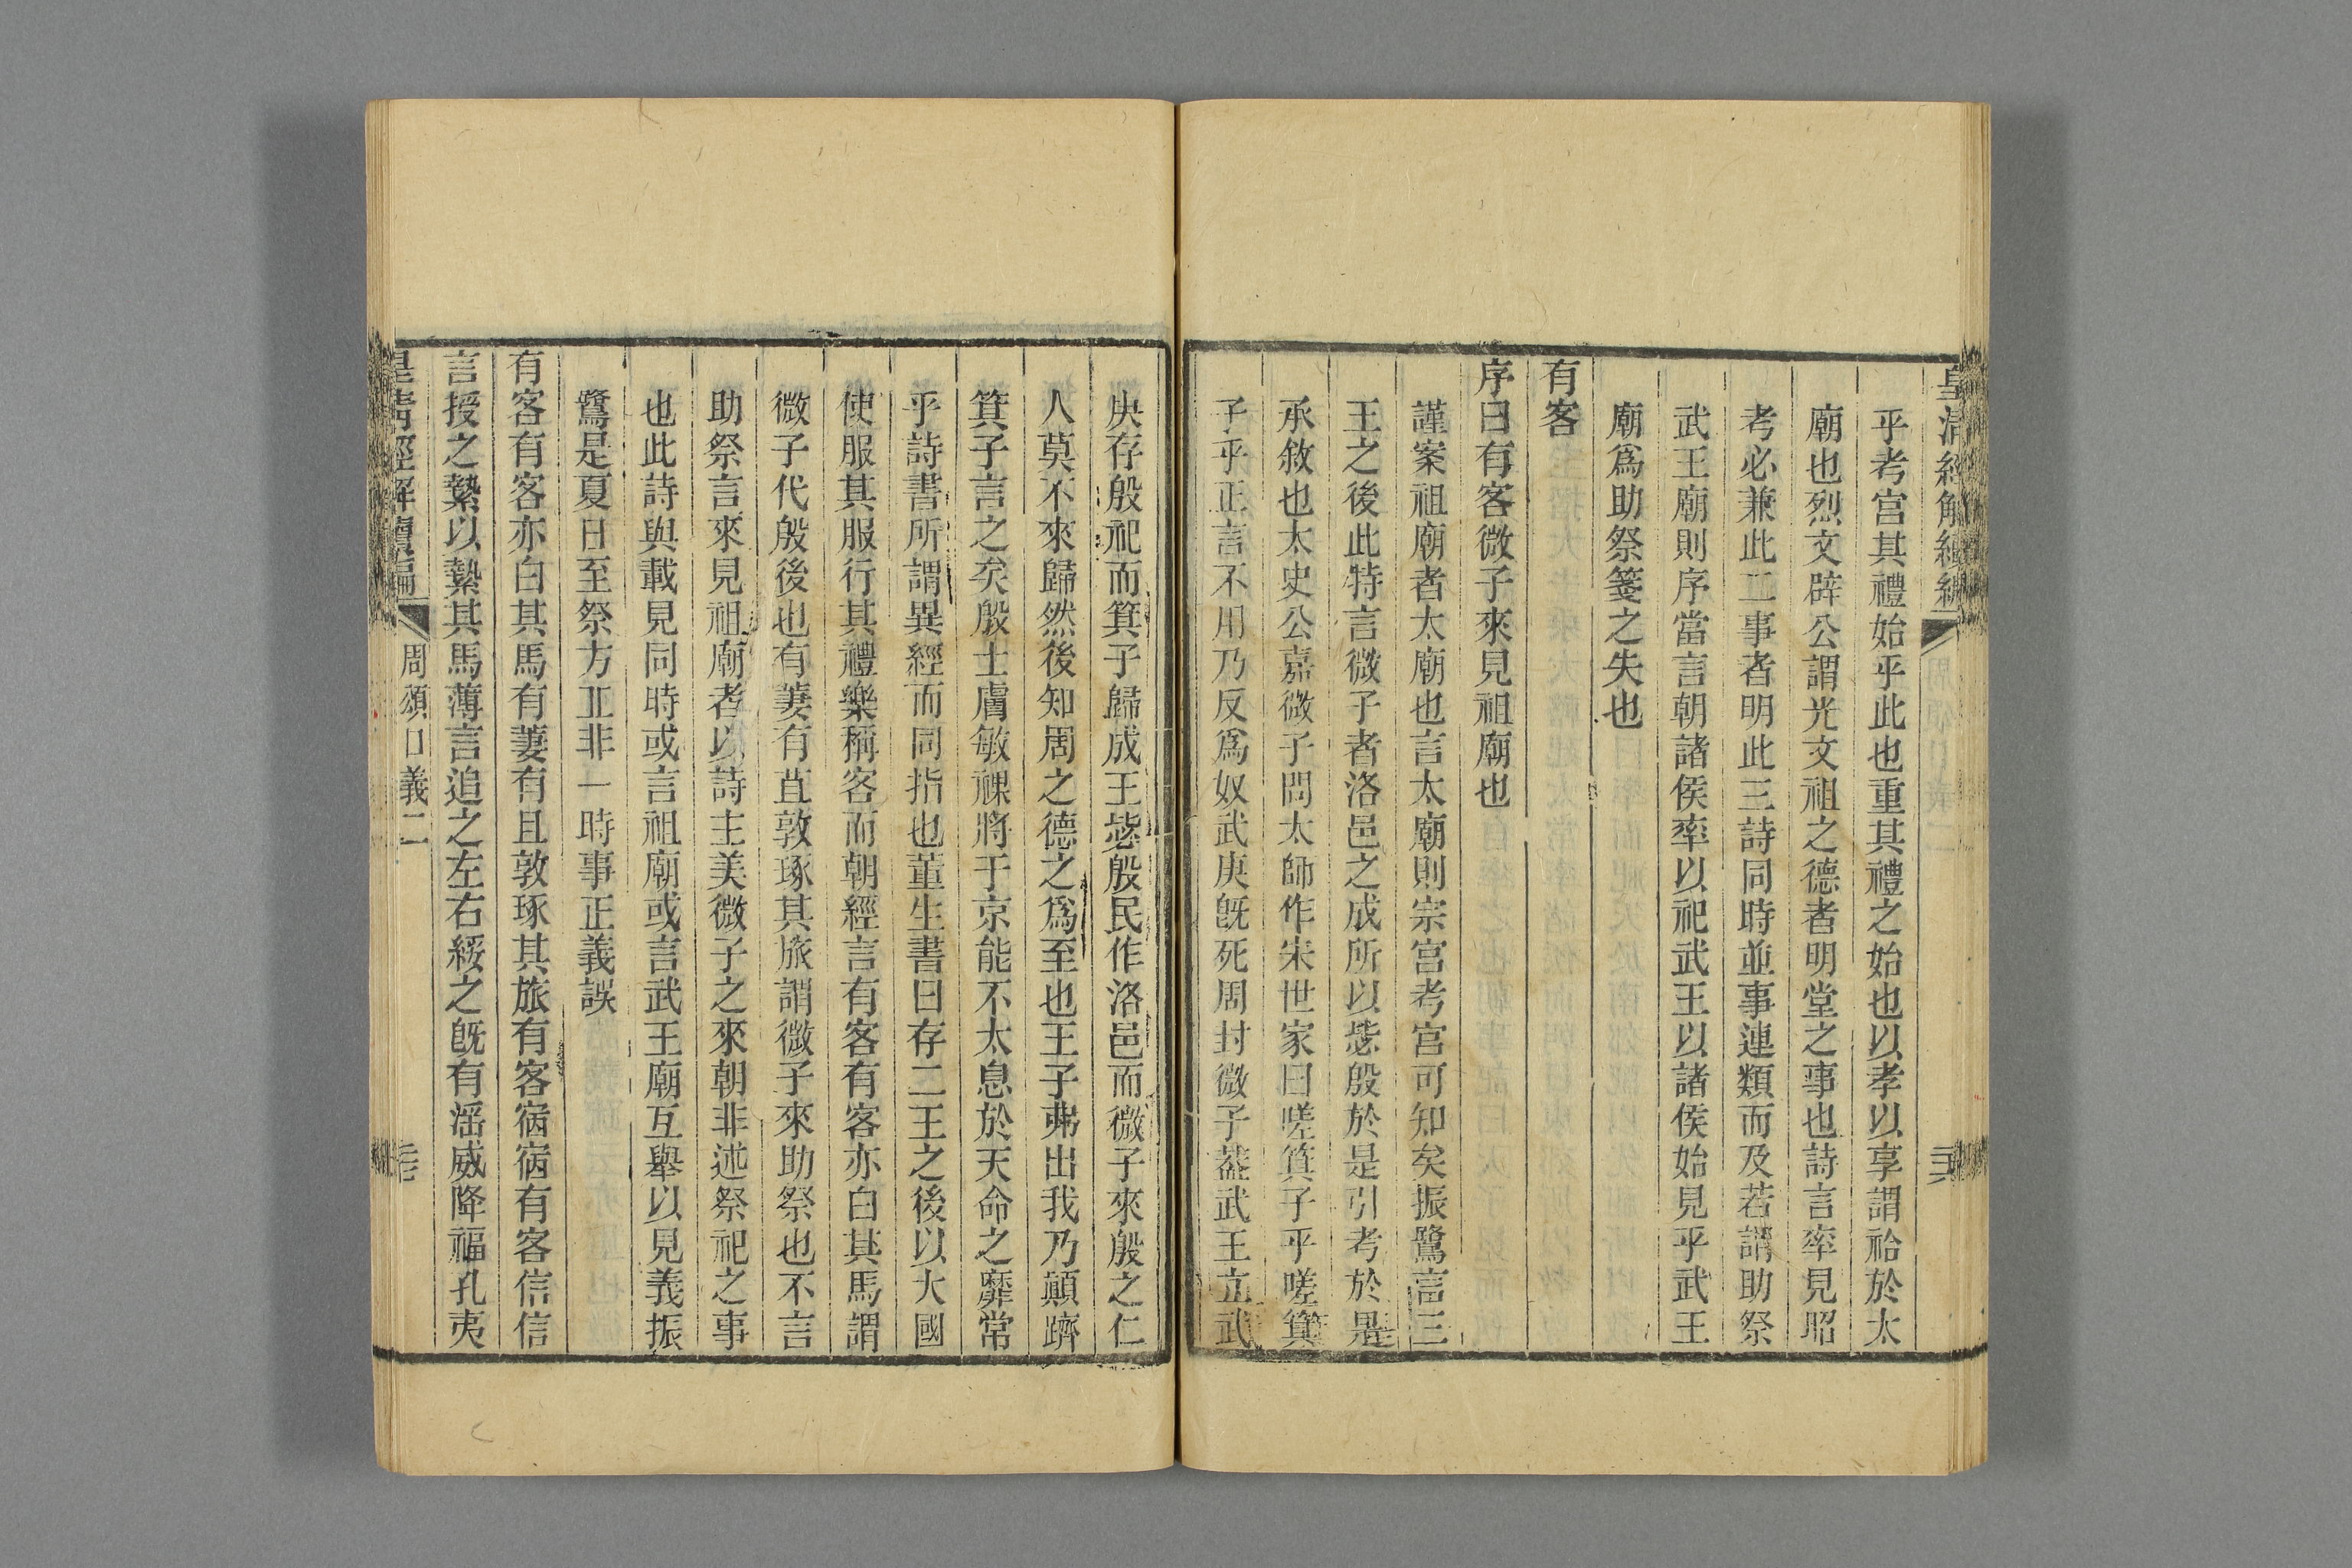 乎考宮其禮始乎此也重其禮之始也以孝以享謂祫於太
廟也烈文辟公謂光文祖之德者明堂之事也詩言率見昭
考必兼此二事者明此三詩同時並事連類而及若謂助祭
武王廟則序當言朝諸侯率以祀武王以諸侯始見乎武王
廟爲助祭箋之失也
有客
序曰有客微子來見祖廟也
謹案祖廟者太廟也言太廟則宗宮考宮可知矣振鷺言三
王之後此特言微子者洛邑之成所以毖殷於是引考於是
承敘也太史公嘉微子問太師作宋世家曰嗟箕子乎嗟箕
子乎正言不用乃反爲奴武庚旣死周封微子葢武王立武
庚存殷祀而箕子歸成王毖殷民作洛邑而微子來殷之仁
人莫不來歸然後知周之德之爲至也王子弗出我乃顚隮
箕子言之矣殷士膚敏祼將于京能不太息於天命之靡常
乎詩書所謂異經而同指也董生書曰存二王之後以大國
使服其服行其禮樂稱客而朝經言有客有客亦白其馬謂
微子代殷後也有萋有苴敦琢其旅謂微子來助祭也不言
助祭言來見祖廟者以詩主美微子之來朝非述祭祀之事
也此詩與載見同時或言祖廟或言武王廟互舉以見義振
鷺是夏日至祭方丘非一時事正義誤
有客有客亦白其馬有萋有且敦琢其旅有客宿宿有客信信
言授之縶以縶其馬薄言追之左右綏之旣有淫威降福孔夷
周頌口義二